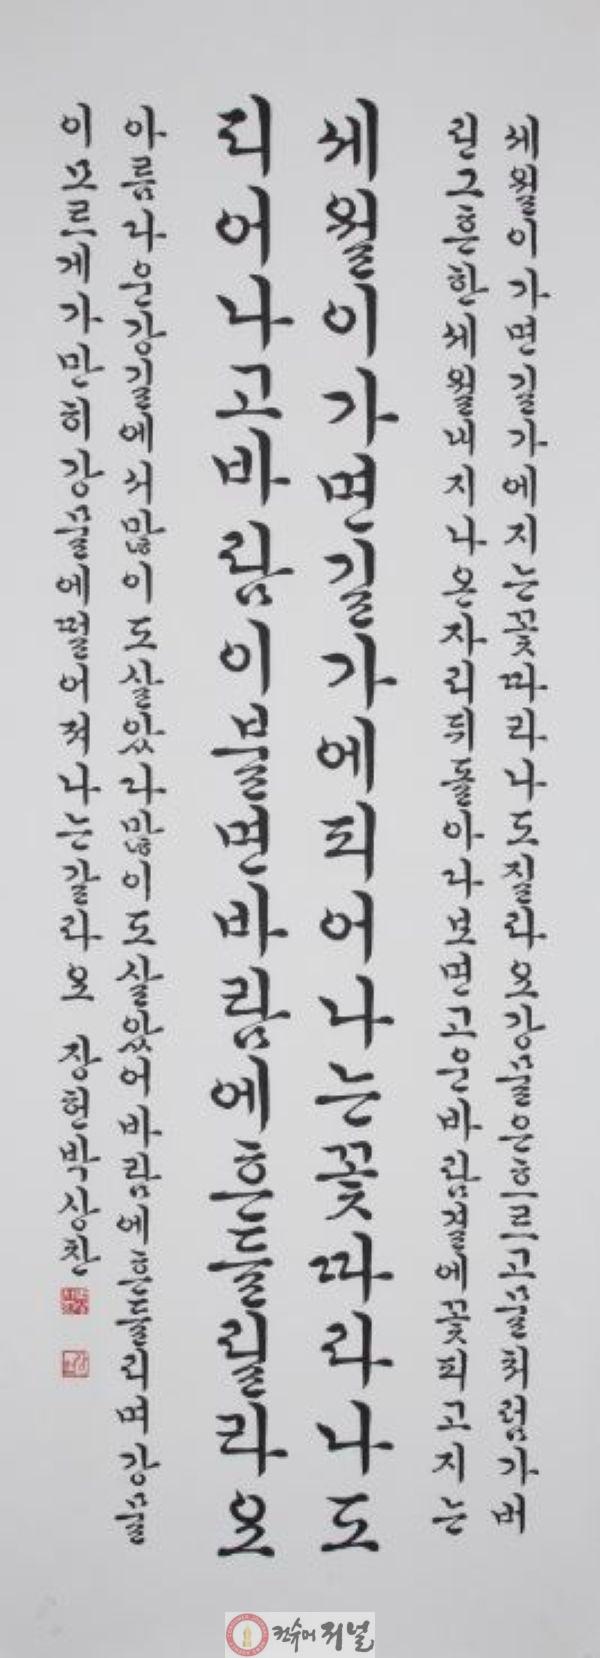 세월이가면길가에지는꽃따라나도질라오강물은흐르고물처럼가버
린그흔한세월내지나온자리뒤돌아다보면고운바람결에꽃피고지는
세월이가면길가에피어나는꽃따라나도
피어나고바람이불면바람에흔들릴라오
아름다운강길에서많이도살았다많이도살았어바람에흔들리며강물
이모르게가만히강물에떨어져나는갈라오 장현박상찬
컨슈머저널